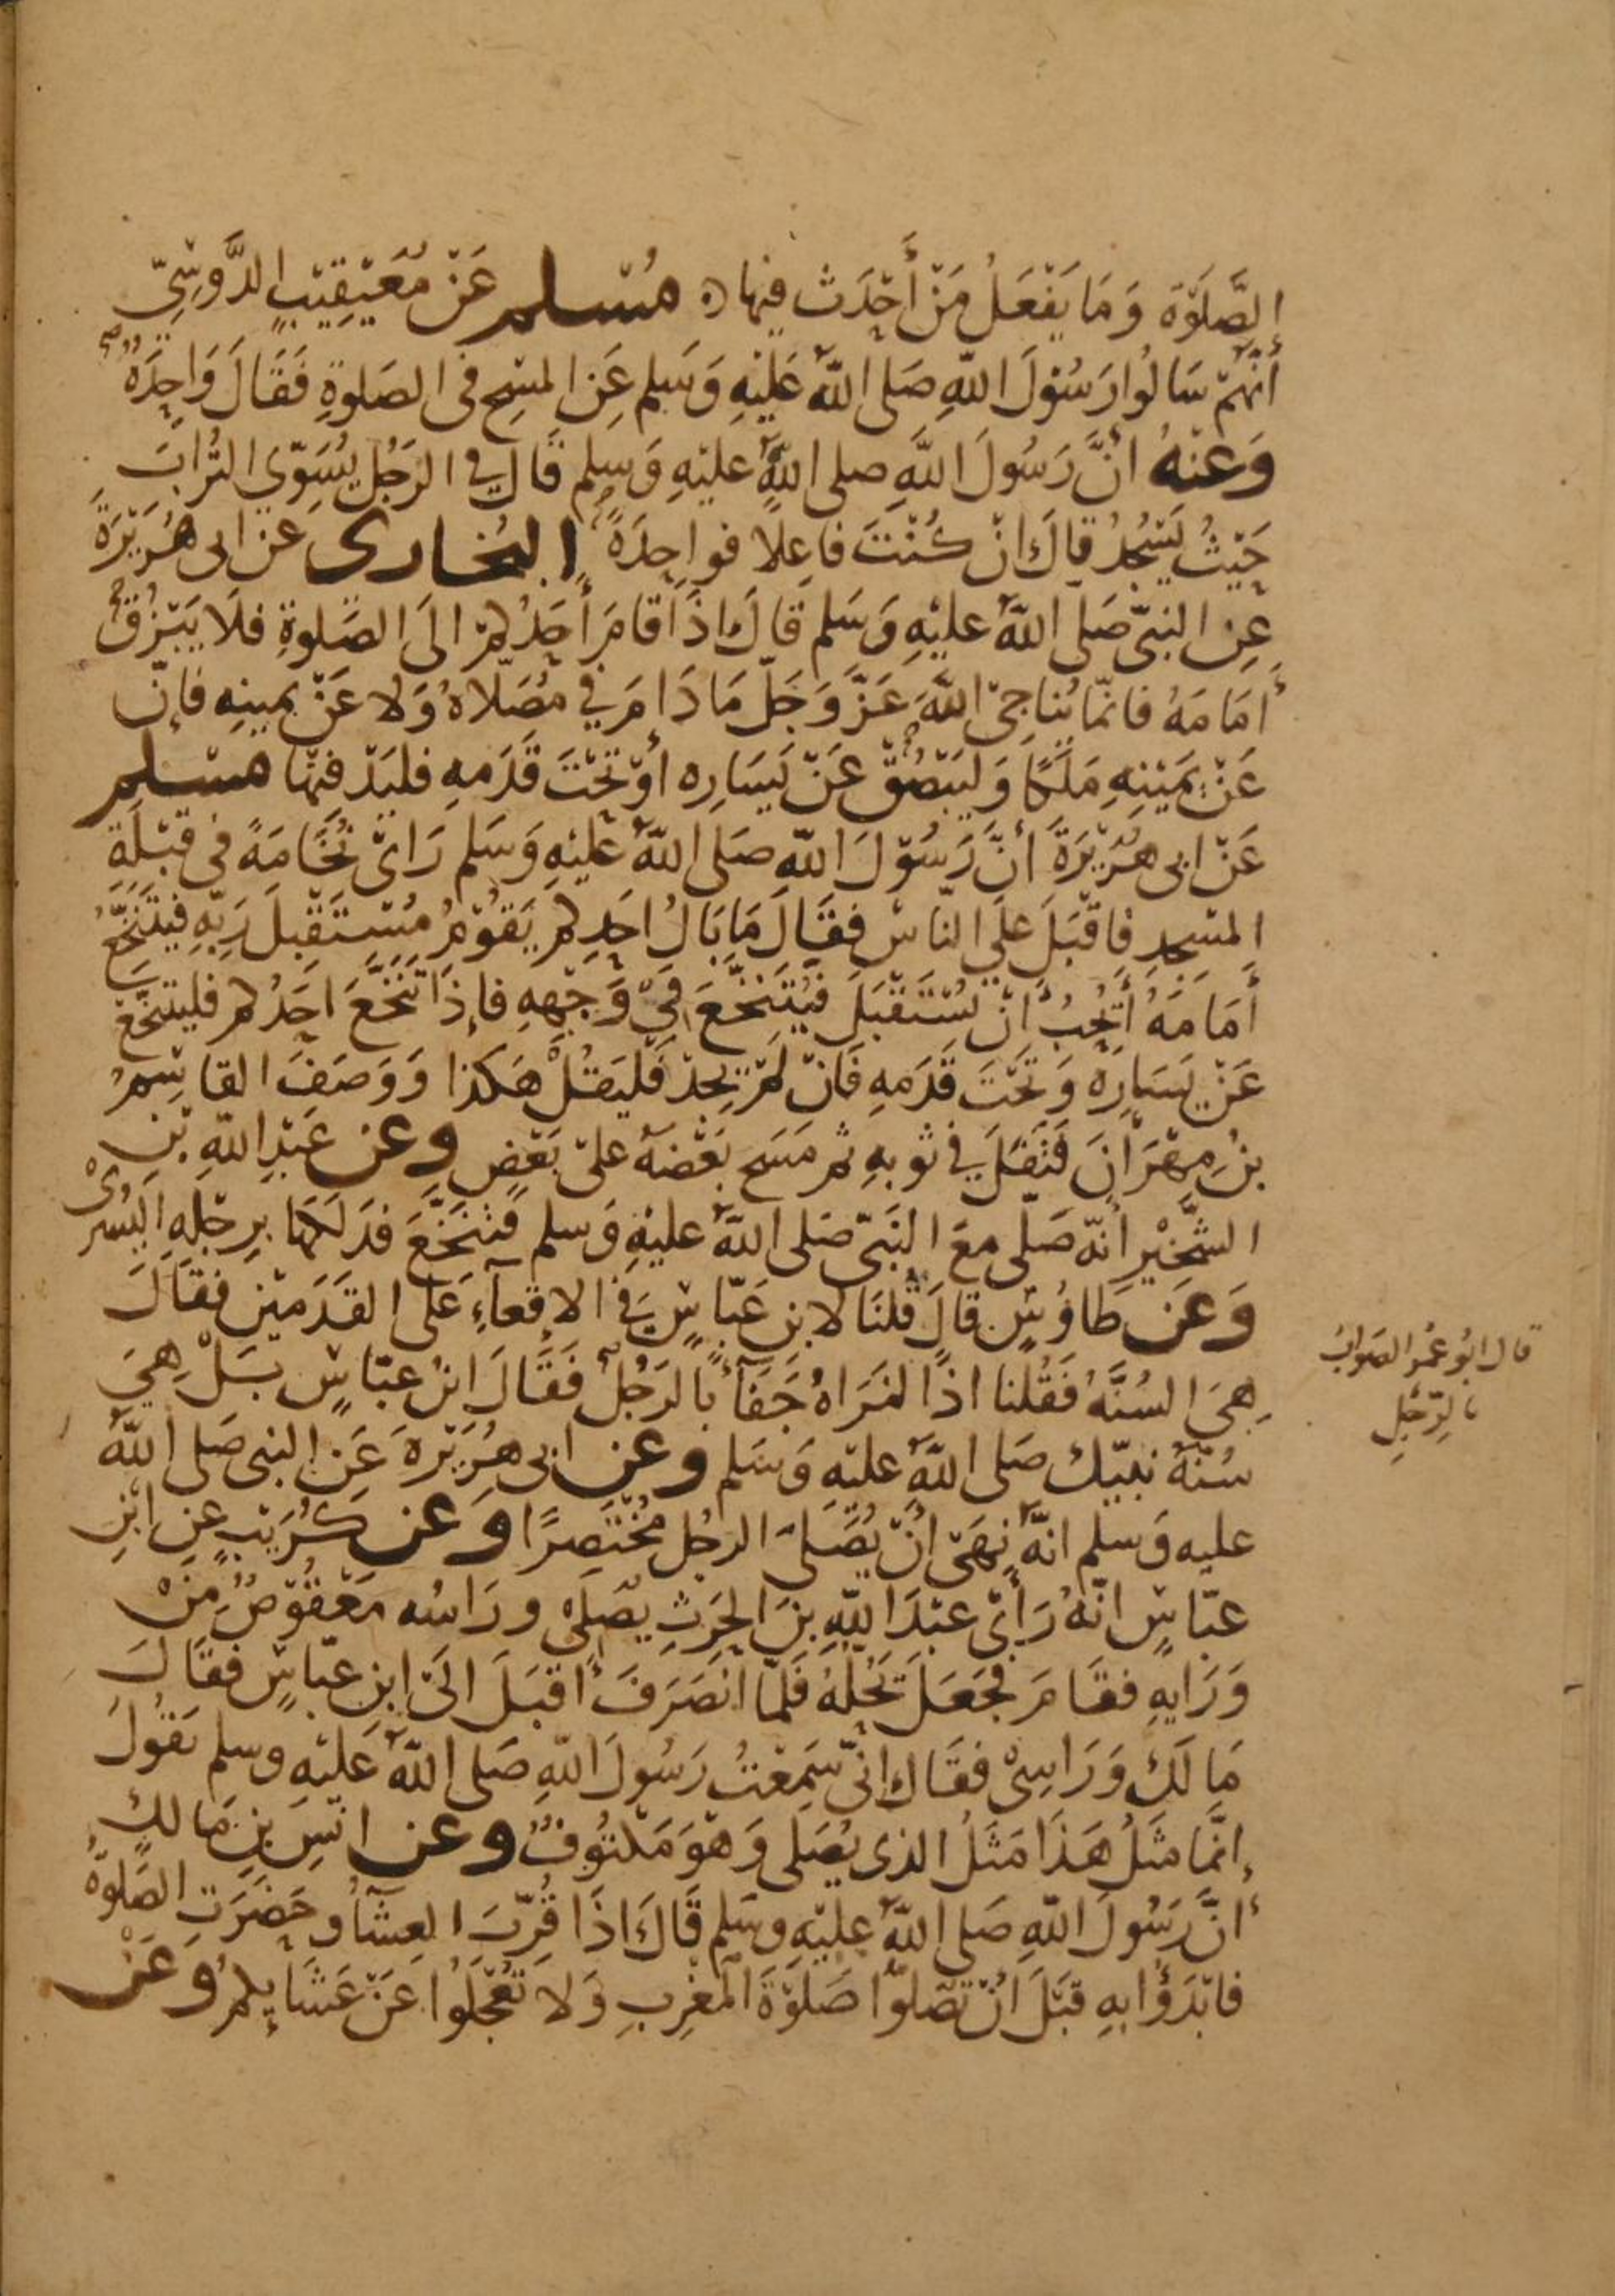 الصَّلَوٰةَ وَمَا يَفْعَلُ مَنْ أَحْدَثَ فِيهَا ه مُسْلم عَنْ مُعَيْقِيْبٍ الدَّوْسِيّ
أنَّهُمْ سَالُوا رَسُوْلَ اللهِ صَلى اللهُ عَلَيْهِ وَسَلم عَنِ المَسْحِ فى الصَلوةِ فَقَالَ وَاحِدَةٌ
وَعَنْهُ انَّ رَسُولَ اللهِ صلى اللهُ عليْهِ وَسلم قَال فِي الرَجُلِ يُسَوّي التُرابَ
حَيْثُ يَسْجُدُ قال انْ كُنْتَ فاعِلا فواحِدَةً البُخارى عن ابى هُرَيْرَةَ
عِن النبىّ صَلى اللهُ عليْهِ وَسَلم قَالَ اذَا قامَ أحَدُكُمْ الَى الصَلوةِ فلَا يَبْزُقْ
أمَامَهُ فانمّا يُناجِىْ اللهَ عَزَّ وَجَلّ مَادَامَ فِي مُصَلّاهُ وَلا عَنْ يمينِهِ فإنّ
عَنْ يَمِيْنِهِ مَلَكًا وَليَبْصُقْ عَنْ يَسَارِه اوْ تَحْتَ قَدَمهِ فليَدْفنها مسْلم
عَنْ ابى هُرَيْرَةَ أنَّ رَسُوْلَ اللهِ صَلى اللهُ عليْهِ وَسَلم رَاىْ نُخَامَةً فى قبْلَةِ
المسْجدِ فاقْبَلَ علَى النّاسِ فقَالَ مَا بَالُ احَدِكم يَقُوْمُ مُسْتَقْبِلَ رَبّهِ فيَتَنَخَّعُ
أَمَامَهُ أيُحِبُّ أنْ يُسْتَقْبَلَ فيُتَنَخَّعَ فِيْ وَجْهِهِ فإذَا تَنَخَّعَ احَدُكم فليَتَنَخَّعْ
عَنْ يَسَارِهِ وَ تَحْتَ قَدَمهِ فَانْ لمْ يَجِدْ فَليَقُلْ هَكذا وَوَصَفَ القاسِمُ
بنُ مِهْرَانَ فَتَفَلَ في ثوبهِ ثم مَسَحَ بَعْضَهُ علىْ بَعْضٍ وعن عَبْدِ اللهِ بْنِ
الشِّخّيْرِ أنّه صَلّى معَ النَبىّ صَلى اللهُ عليْهِ وَسلم فتنَخَّعَ فدَلكَهَا برِجْلِهِ اليُسْرىْ
وَعَن طَاوُسٍ قالَ قُلنَا لابنِ عَبّاسٍ فى الاقعآءِ عَلى القدَمَيْنِ فقَالَ
هِىَ السُنَّةُ فَقُلنا اذًا لنَرَاهُ جَفَآءً بالرَجُلِ فَقَالَ ابنُ عبّاسٍ بَلْ هِيَ
سُنّةُ نبيّك صَلى اللهُ عليْهِ وَسَلم وعن ابى هُرَيْرةَ عَنِ النبى صَلى اللهُ
عليه وَسلم انهُّ نهَىْ انْ يُصَلىَ الرجُل مُخْتَصِرًا وَعن كُرَيْبٍ عن ابْنِ
عبّاسٍ انّهُ رَأىْ عبْدَ اللهِ بنَ الحَرِثِ يُصَلى ورَاسُه مَعْقُوْصٌ مِنْ
وَرَايهِ فقَامَ فجَعَلَ يَحُلّهُ فَلمّا انْصَرَفَ اقبَلَ الىَ ابنِ عبّاسٍ فقَالَ
مَا لَكَ وَرَاسِىْ فقَال انّى سَمِعْتُ رَسُولَ اللهِ صَلى اللهُ عَليْهِ وسلم يَقُولُ
إنمَّا مَثَلُ هَذَا مَثَلُ الذى يُصَلى وَهْوَ مَكتُوفٌ وعن انَسِ بنِ مَالكٍ
أنَّ رَسُولَ اللهِ صَلى اللهُ عليْهِ وسَلم قَالَ اذَا قُرّبَ العِشَآ وحَضَرَتِ الصَلوةُ
فابْدَؤُا بهِ قبْلَ أنْ تصَلوّا صَلَوْةَ المغرِبِ وَلا تعْجَلُوا عَنْ عَشَايِكمْ وعَنْ
قال ابُو عُمَر الصَوابُ
بالرِّجْلِ